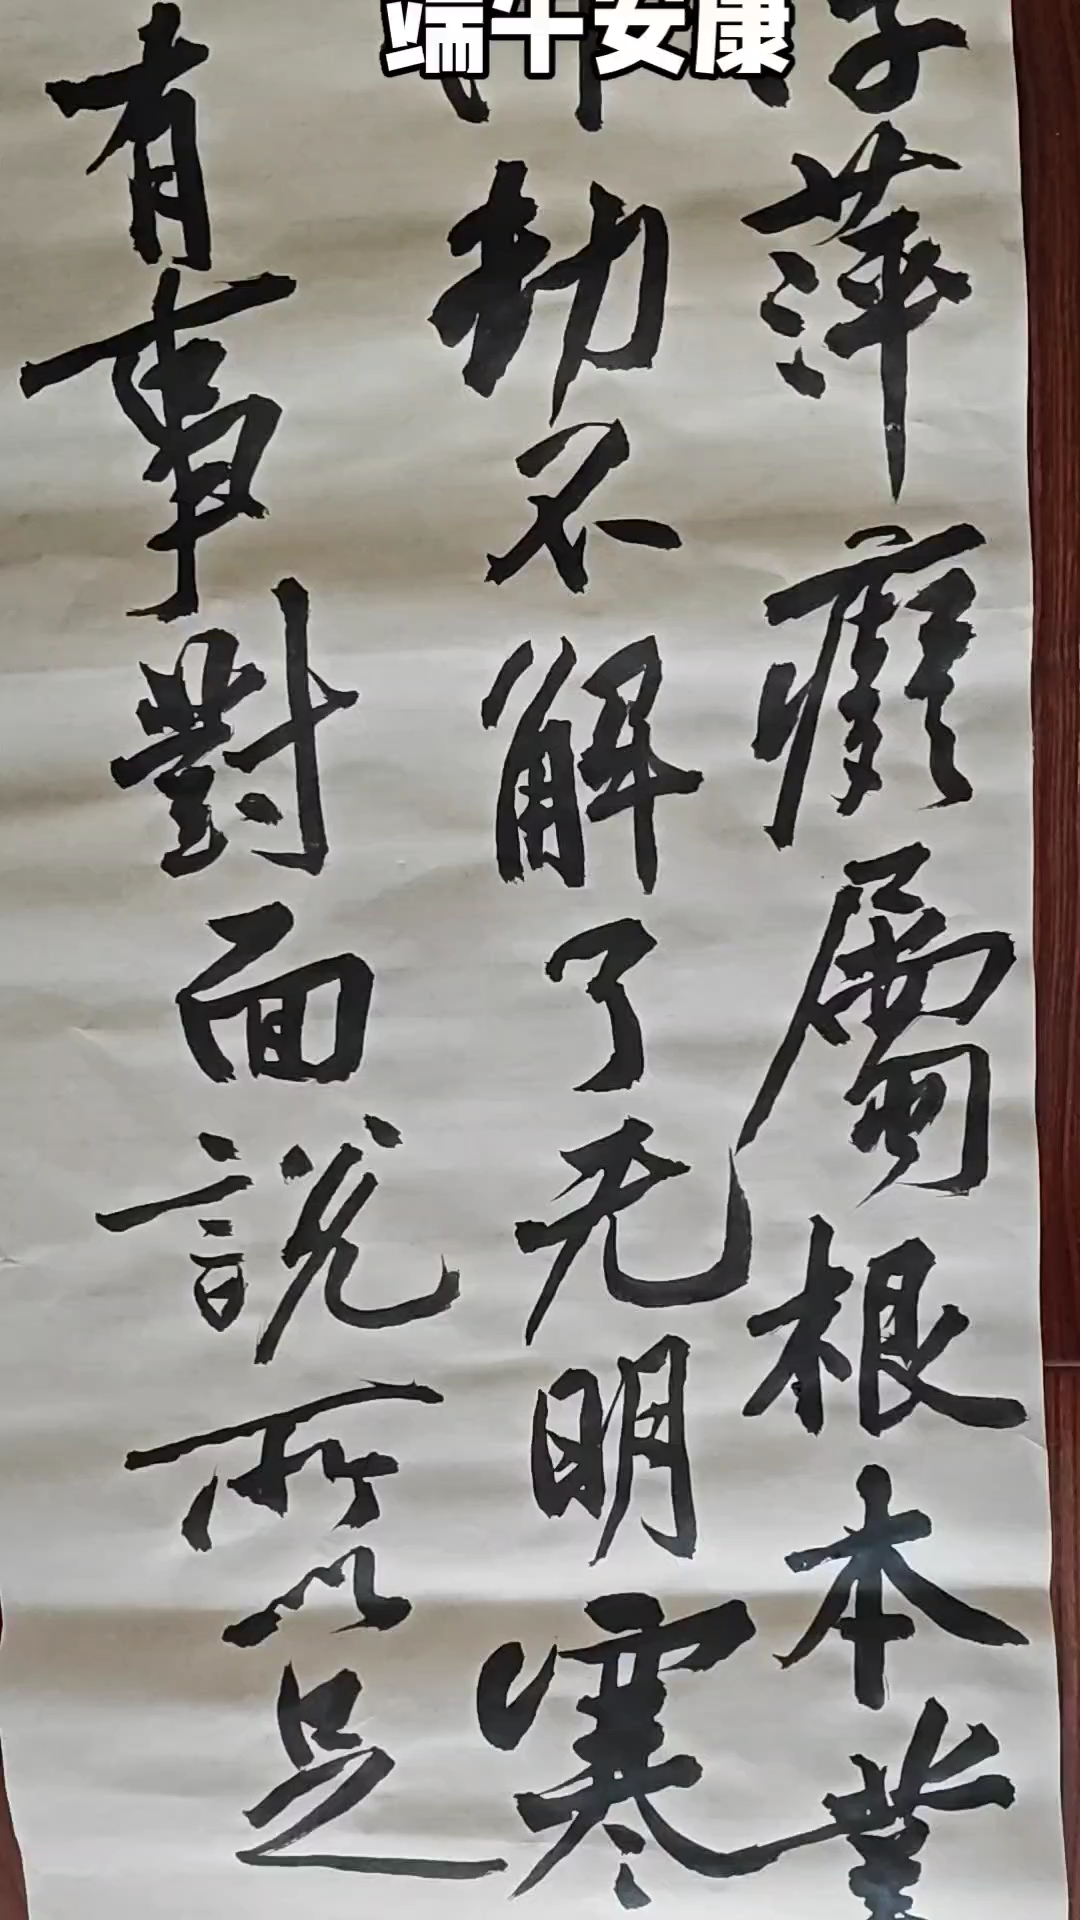 端午安康
萍癡屬根本業
劫不解了无明寒
有事對面說所以足